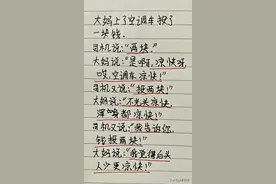 大妈上了空调车投了
一块钱。
司机说:“两块。”
大妈说:“是啊,凉快呀,
哎,空调车凉快!”
司机又说:“投两块!”
大妈说:“不光头凉快,
浑身都凉快!”
司机又说:“我告诉你,
钱投两块!”
大妈说:“我觉得后头
人少更凉快!”